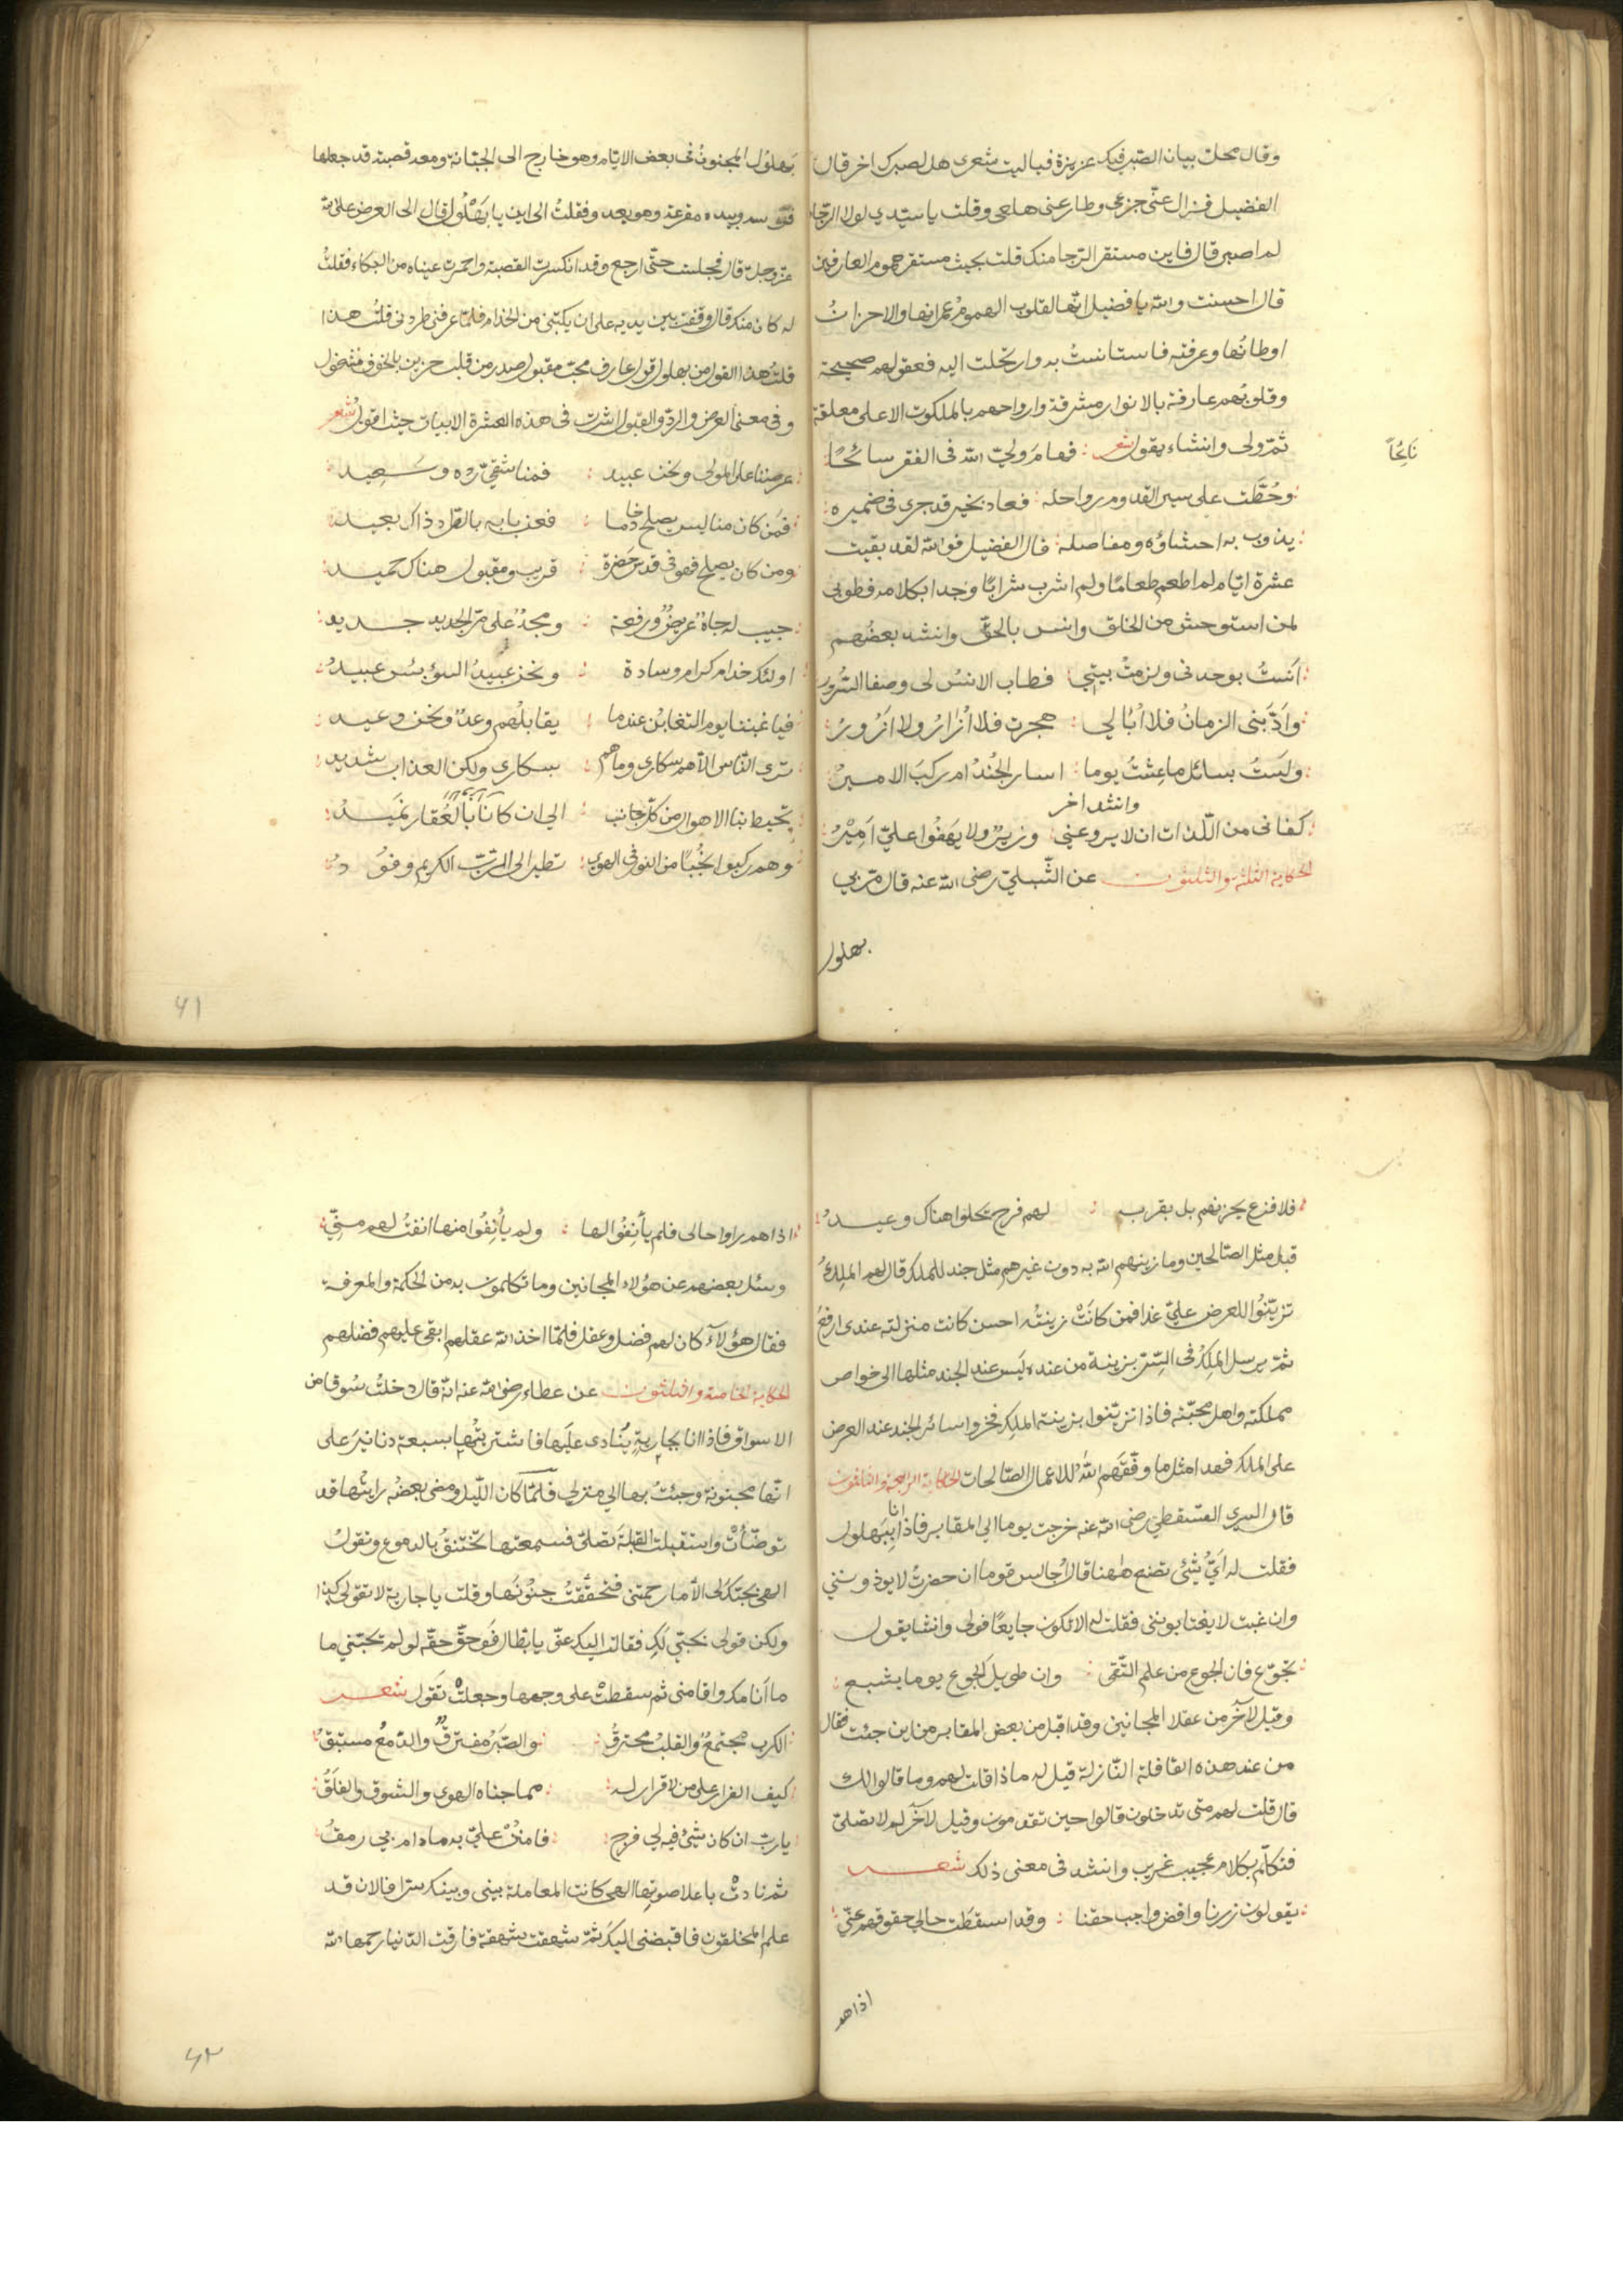 وقال محل بيان الصبر فيك عزيزة فياليت شعرى هل لصبرك اخر قال
الفضيل فزال عنّى جزعى وطار عنى هلعى وقلت ياسيّدي لولا الرّجا
لم اصبر قال فاين مستقر الرّجا منك قلت بحيث مستقر هموم العارفين
قال احسنت والله يا فضيل انّها لقلوب الهمومُ عمرانها والاحزانُ
اوطانُها وعرفته فاستانستُ به وارتحلت اليه فعقولهم صحيحة
وقلوبُهم عارفة بالانوار مشرقة وارواحهم بالملكوت الاعلى معلقة
ثمّ ولى وانشاء يقول شعر : فهام وليّ الله فى الفقر سائحًا
نائحًا
وحُطَّت على سير القدوم رواحله : فعاد بخير قد جرى فى ضميره
يذوب به احشاؤه ومفاصله : قال الفضيل فوالله لقد بقيت
عشرة ايّام لم اطعم طعامًا ولم اشرب شرابًا وجدا بكلامه فطوبى
لمن استوحش من الخلق وانس بالحقّ وانشد بعضُهم
انستُ بوحدتى ولزمتُ بيتي : فطاب الانسُ لى وصفا السّرور
وادّبنى الزمانُ فلا اُبالي : هجرت فلا اُزارُ ولا ازورُ
ولستُ بسائل ما عشتُ يوما : اسار الجُندُ ام ركبَ الاميرُ
وانشد اخر
كفانى من اللّذات ان لا يروعنى : وزيرٌ ولا يهفُوا عليّ اميرُ
الحكاية الثلثة والثلثون عن الشّبليّ رضى الله عنه قال مرّ بي
بهلول
بَهلُول المجنونُ فى بعض الايّام وهو خارج الى الجبّانة ومعه قصبة قد جعلها
وبيده مقرعة وهو يعد وفقلتُ الى اين يا بَهْلُول قال الى العرض على الله
عزّوجلّ قال فجلست حتّى ارجع وقد انكسرت القصبة واحمرت عيناه من البكاء فقلتُ
له ما كان منك قال وقفت بين يديه على ان يكتبنى من الخدام فلمّا عرفنى طردنى قلتُ هذا
قلتُ هذا القول من بهلول قول عارف محبّ مقبول صدر من قلب حزين بالخوف مشغول
وفى معنى العرض والردّ والقبول اشرت فى هذه العشرة الابيات حيث اقول شعر
عرضنا على المولى ونحن عبيد : فمنا شقيّ ردّه وسَعيد
فمَن كان منا ليس يصلح خادما : فعن بابه بالطرد ذاك بعيد
ومن كان يصلح فهو فى قدس حَضرة : قريب ومقبول هناك حميد
حبيب له جاهٌ عريضٌ ورفعة : ومجدٌ على مرّ الجديد جديد
اولئك خدام كرام وسادة : ونحن عَبيدُ السوء بئس عبيدُ
فيا غبننا يوم التغابن عندما : يقابلُهم وعدٌ ونحن وعيد
ترى النّاس الاّ هم سكارى وما هم : بسكارى ولكن العذاب شديد
يحيط بنا الاهوال من كلّ جانب : الى ان كانّا بالعُقار نَميدُ
وهم ركبوا نجُبًا من النور فى الهوى : تطير الى الرّبّ الكريم وفودُ
٤١
فلا فزع يحزنهم بل بقربه : لهم فرح تحلوا هناك وعيدُ
قيل مثل الصّالحين وما زينهم الله به دون غيرهم مثل جند للملك قال لهم الملِكُ
تزيّنُوا للعرض عليّ غدا فمن كانَتْ زينتُه احسن كانت منزلته عندى ارفعَ
ثمّ يرسل الملِكُ فى السّرّ بزينة من عنده ليس عند الجند مثلها الى خواص
مملكته واهل محبّته فاذا تزيّنوا بزينة الملِك فخروا سائر الجند عند العرض
على الملك فهذا مثل ما وفّقهم اللهُ للاعمال الصّالحات الحكاية الرابعة والثلثون
قال السرى السّقطي رضى الله عنه خرجت يوما الي المقابر فاذا انا بِبَهلول
فقلت له ايُّ شئ تصنع ههنا قال اُجالس قوما ان حضرتُ لا يوذونني
وان غبت لا يغتابوننى فقلت له الا تكون جايعًا فولى وانشا يقول
تجوّع فان الجوع من علم التّقى : وان طويلَ الجوع يوما يشبع
وقيل لآخر من عقلا المجانين وقد اقبل من بعض المقابر من اين جئت فقال
من عند هذه القافلة النّازلة قيل له ماذا قلت لهم وما قالوا لك
قال قلت لهم متى ترحلون قالوا حين تقدمون وقيل لآخر لم لا تصلّى
فتكلّم بكلام عجيب غريب وانشد فى معنى ذلك شعر
يقولون زرنا واقض واجب حقنا : وقد اسقطَت حالي حقوقهم عنّي
اذا هم
اذا هم راوا حالى فلم يأنِفُوا لها : ولم يأنِفُوا منها انفتُ لهم منّي
وسئل بعضهم عن هؤلاء المجانين وما تكلمون به من الحكمة والمعرفة
فقال هؤلآء كان لهم فضل وعقل فلمّا اخذ الله عقلهم ابقى عليهم فضلهم
الحكاية الخامسة والثلثون عن عطاء رضى الله عنه انّه قال دخلتُ سُوقا من
الاسواق فاذا انا بجاريةٍ يُنادى علَيها فاشتريتُها بسبعة دنانيرَ على
انّها مجنونة وجئتُ بها الي منزلي فلمّا كان اللّيل ومضى بعضُه رايتُها قد
توضّأتْ واستقبلت القبلَةَ تصلّى فسمعتها تختنقُ بالدموع وتقولُ
الهى بحبّك لى الاّ ما رحمتنى فتحقّقتُ جنُونَها وقلت يا جارية لا تقولى كذا
ولكن قولى بحبّي لَك فقالت اليك عنّى يا بطّال فَوَحقّ حقّه لو لم تحبّني ما
ما انامك واقامنى ثم سقطتْ على وجهها وجعلتْ تقول شعر
الكرب مجتمعٌ والقلبُ محترقُ : والصّبرُ مفترقٌ والدّمعُ مستبقُ
كيف الفرار على من لا قرار له : مما جناه الهوى والشوق والقلَقُ
ياربّ ان كان شئٌ فيه لى فرج : فامنُنْ عليّ به مادام بى رمقُ
ثمّ نادتْ باعلا صوتِها الهى كانت المعاملة بينى وبينك سرّا فالان قد
علم المخلقون فاقبضنى اليكَ ثمّ شهقت شهقة فارقت الدّنيا رحمها الله
٤٢